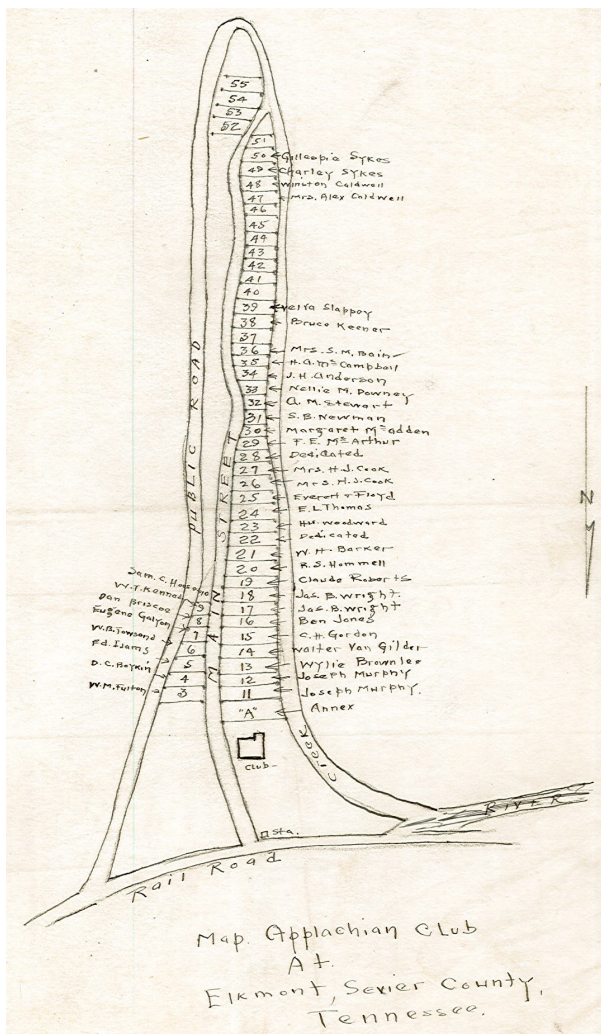 55
54
53
52
51
50 Gillespie Sykes
49 Charley Sykes
48 Winston Caldwell
47 Mrs. Alex Caldwell
46
45
44
43
42
41
40
39 Velva Slappey
38 Bruce Keener
37
36 Mrs. S. M. Bain
35 H. A. McCampbell
34 J. H. Anderson
33 Nellie M. Downey
32 A. M. Stewart
31 S. B. Newman
30 Margaret McAdden
29 F. E. McArthur
28 Dedicated
27 Mrs. H. J. Cook
26 Mrs. H. J. Cook
25 Everett & Floyd
24 E. L. Thomas
23 H.W. Woodward
22 Dedicated
21 W. H. Barker
20 R. S. Hommell
19 Claude Roberts
18 Jas. B. Wright.
17 Jas. B. Wright
16 Ben Jones
15 C. H. Gordon
14 Walter Van Gilder
13 Wylie Brownlee
12 Joseph Murphy
11 Joseph Murphy.
"A" Annex
Sam. C.
W. T. Kennedy 9
Dan Briscoe 8
Eugene Galyon 7
W. B. Townsend 6
Ed. Ijams 5
D. C. Boykin 4
W. M. Fulton 3
PUBLIC ROAD
MAIN STREET
Creek
Club-
Sta.
RIVER
Rail Road
N
Map Applachian Club
At
Elkmont, Sevier County,
Tennessee.